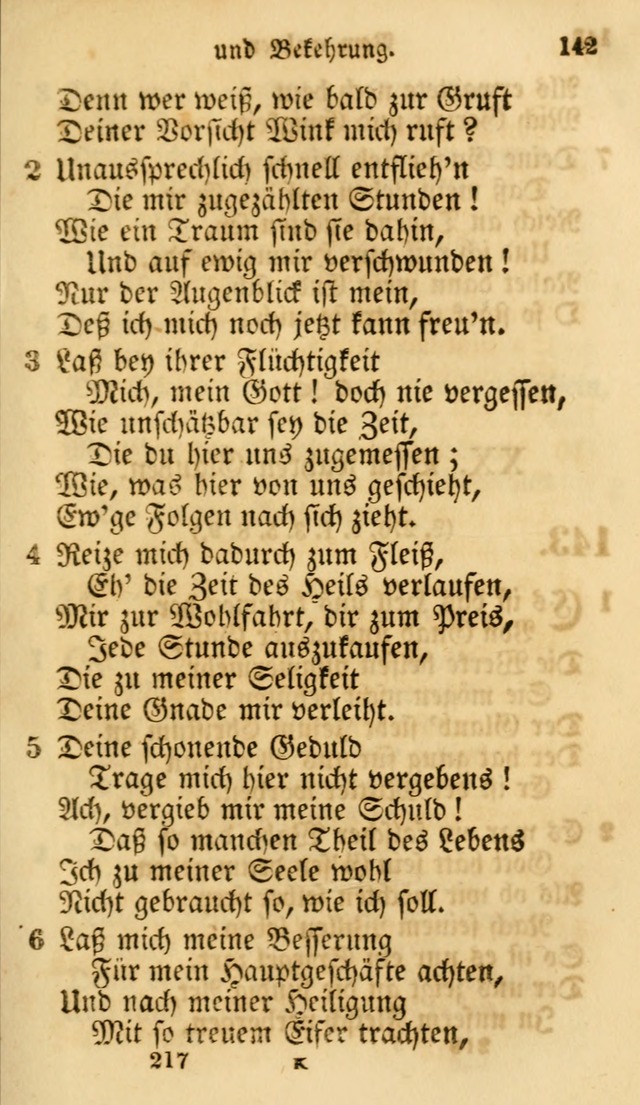 und Bekehrung. 142
Denn wer weiß, wie bald zur Gruft
Deiner Vorsicht Wink mich ruft?
2 Unaussprechlich schnell entflieh'n
Die mir zugezählten Stunden!
Wie ein Traum sind sie dahin,
Und auf ewig mir verschwunden!
Nur der Augenblick ist mein,
Deß ich mich noch jetzt kann freu'n.
3 Laß bey ihrer Flüchtigkeit
Mich, mein Gott! doch nie vergessen,
Wie unschätzbar sey die Zeit,
Die du hier uns zugemessen;
Wie, was hier von uns geschieht,
Ew'ge Folgen nach sich zieht.
4 Reize mich dadurch zum Fleiß,
Eh' die Zeit des Heils verlaufen,
Mir zur Wohlfahrt, dir zum Preis,
Jede Stunde auszukaufen,
Die zu meiner Seligkeit
Deine Gnade mir verleiht.
5 Deine schonende Geduld
Trage mich hier nicht vergebens!
Ach, vergieb mir meine Schuld!
Daß so manchen Theil des Lebens
Ich zu meiner Seele wohl
Nicht gebraucht so, wie ich soll.
6 Laß mich meine Besserung
Für mein Hauptgeschäfte achten,
Und nach meiner Heiligung
Mit so treuem Eifer trachten,
217 K